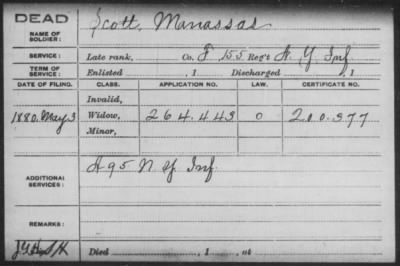 DEAD
NAME OF SOLDIER: Scott, Manassas
SERVICE: Late rank, Co. F 155 Reg't N. Y. Inf
TERM OF SERVICE: Enlisted , 1 Discharged , 1
DATE OF FILING. CLASS. APPLICATION NO. LAW. CERTIFICATE NO.
Invalid,
1880. May 3 Widow, 264.443 0 210.377
Minor,
ADDITIONAL SERVICES: H 95 N. Y. Inf.
REMARKS:
Died , 1 , at